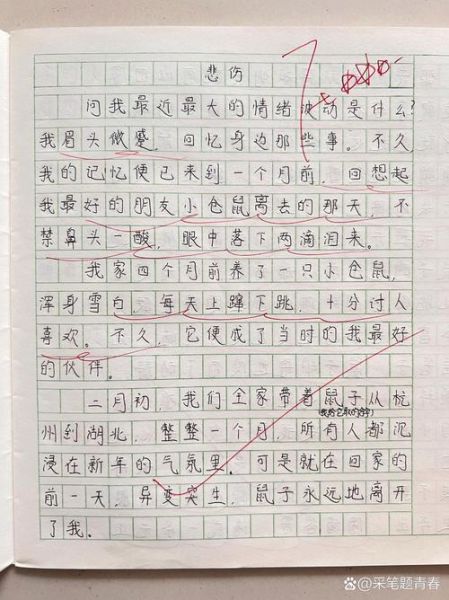 悲伤
问我最近最大的情绪波动是什么?
我眉头微蹙,回忆身边那些事。不久
我的记忆便已来到一个月前,回想起
我最好的朋友小仓鼠离去的那天,不
禁鼻头一酸,眼中落下两滴泪来。
我家四个月前养了一只小仓鼠,
浑身雪白,每天上蹿下跳,十分讨人
喜欢。不久,它便成了当时的我最好
的伙伴。
二月初,我们全家带着鼠子从杭
(我给它取的名字)
州到湖北,整整一个月,所有人都沉
浸在新年的气氛里。可是就在回家的
前一天,异变突生,鼠子永远地离开
了我。
@采笔题青春